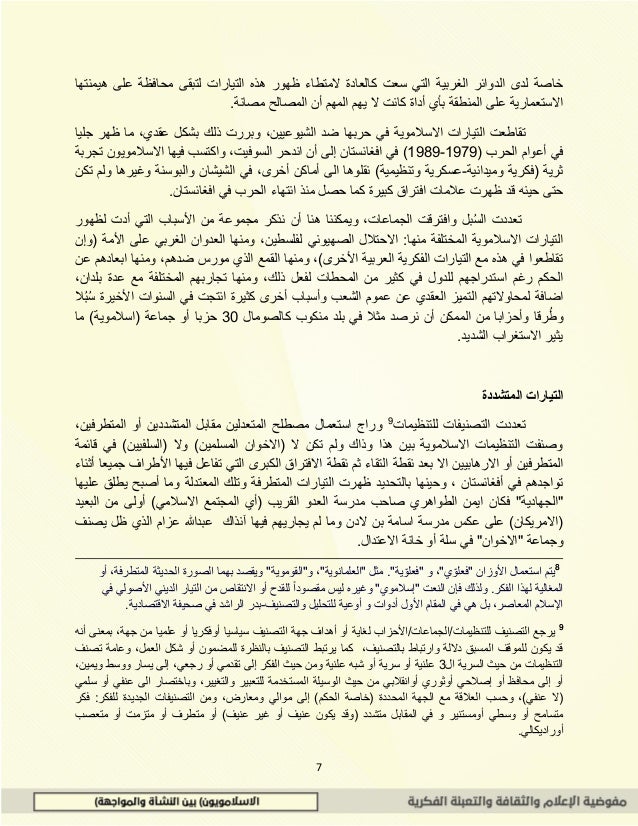 خاصة لدى الدوائر الغربية التي سعت كالعادة لامتطاء ظهور هذه التيارات لتبقى محافظة على هيمنتها
الاستعمارية على المنطقة بأي أداة كانت لا يهم المهم أن المصالح مصانة.
تقاطعت التيارات الاسلاموية في حربها ضد الشيوعيين، وبررت ذلك بشكل عقدي، ما ظهر جليا
في أعوام الحرب (1979-1989) في افغانستان إلى أن اندحر السوفيت، واكتسب فيها الاسلامويون تجربة
ثرية (فكرية وميدانية-عسكرية وتنظيمية) نقلوها الى أماكن أخرى، في الشيشان والبوسنة وغيرها ولم تكن
حتى حينه قد ظهرت علامات افتراق كبيرة كما حصل منذ انتهاء الحرب في افغانستان.
تعددت السُبل وافترقت الجماعات، ويمكننا هنا أن نذكر مجموعة من الأسباب التي أدت لظهور
التيارات الاسلاموية المختلفة منها: الاحتلال الصهيوني لفلسطين، ومنها العدوان الغربي على الأمة (وإن
تقاطعوا في هذه مع التيارات الفكرية العربية الأخرى)، ومنها القمع الذي مورس ضدهم، ومنها ابعادهم عن
الحكم رغم استدراجهم للدول في كثير من المحطات لفعل ذلك، ومنها تجاربهم المختلفة مع عدة بلدان،
اضافة لمحاولاتهم التميز العقدي عن عموم الشعب وأسباب أخرى كثيرة انتجت في السنوات الأخيرة سُبُلا
وطُرقا وأحزابا من الممكن أن نرصد مثلا في بلد منكوب كالصومال 30 حزبا أو جماعة (اسلاموية) ما
يثير الاستغراب الشديد.
التيارات المتشددة
تعددت التصنيفات للتنظيمات9 وراج استعمال مصطلح المتعدلين مقابل المتشددين أو المتطرفين،
وصنفت التنظيمات الاسلاموية بين هذا وذاك ولم تكن لا (الاخوان المسلمين) ولا (السلفيين) في قائمة
المتطرفين أو الارهابيين الا بعد نقطة التقاء ثم نقطة الافتراق الكبرى التي تفاعل فيها الأطراف جميعا أثناء
تواجدهم في أفغانستان ، وحينها بالتحديد ظهرت التيارات المتطرفة وتلك المعتدلة وما أصبح يطلق عليها
"الجهادية" فكان ايمن الظواهري صاحب مدرسة العدو القريب (أي المجتمع الاسلامي) أولى من البعيد
(الامريكان) على عكس مدرسة اسامة بن لادن وما لم يجاريهم فيها أنذاك عبدالله عزام الذي ظل يصنف
وجماعة "الاخوان" في سلة أو خانة الاعتدال.
8يتم استعمال الأوزان "فعلوي"، و "فعلوية". مثل "العلمانوية"، و"القوموية" ويقصد بهما الصورة الحديثة المتطرفة، أو
المغالية لهذا الفكر. ولذلك فإن النعت "إسلاموي" وغيره ليس مقصوداً للقدح أو الانتقاص من التيار الديني الأصولي في
الإسلام المعاصر، بل هي في المقام الأول أدوات و أوعية للتحليل والتصنيف-بدر الراشد في صحيفة الاقتصادية.
9 يرجع التصنيف للتنظيمات/الجماعات/الأحزاب لغاية أو أهداف جهة التصنيف سياسيا أوفكريا أو علميا من جهة، بمعنى أنه
قد يكون للموقف المسبق دلالة وارتباط بالتصنيف، كما يرتبط التصنيف بالنظرة للمضمون أو شكل العمل، وعامة تصنف
التنظيمات من حيث السرية الـ3 علنية أو سرية أو شبه علنية ومن حيث الفكر إلى تقدمي أو رجعي، إلى يسار ووسط ويمين،
أو إلى محافظ أو إصلاحي أوثوري أوانقلابي من حيث الوسيلة المستخدمة للتعبير والتغيير، وباختصار الى عنفي أو سلمي
(لا عنفي)، وحسب العلاقة مع الجهة المحددة (خاصة الحكم) إلى موالي ومعارض، ومن التصنيفات الجديدة للفكر: فكر
متسامح أو وسطي أومستنير و في المقابل متشدد (وقد يكون عنيف أو غير عنيف) أو متطرف أو متزمت أو متعصب
أوراديكالي.
7
مفوضية الإعلام والثقافة والتعبئة الفكرية
الاسلامويون) بين النشأة والمواجهة)